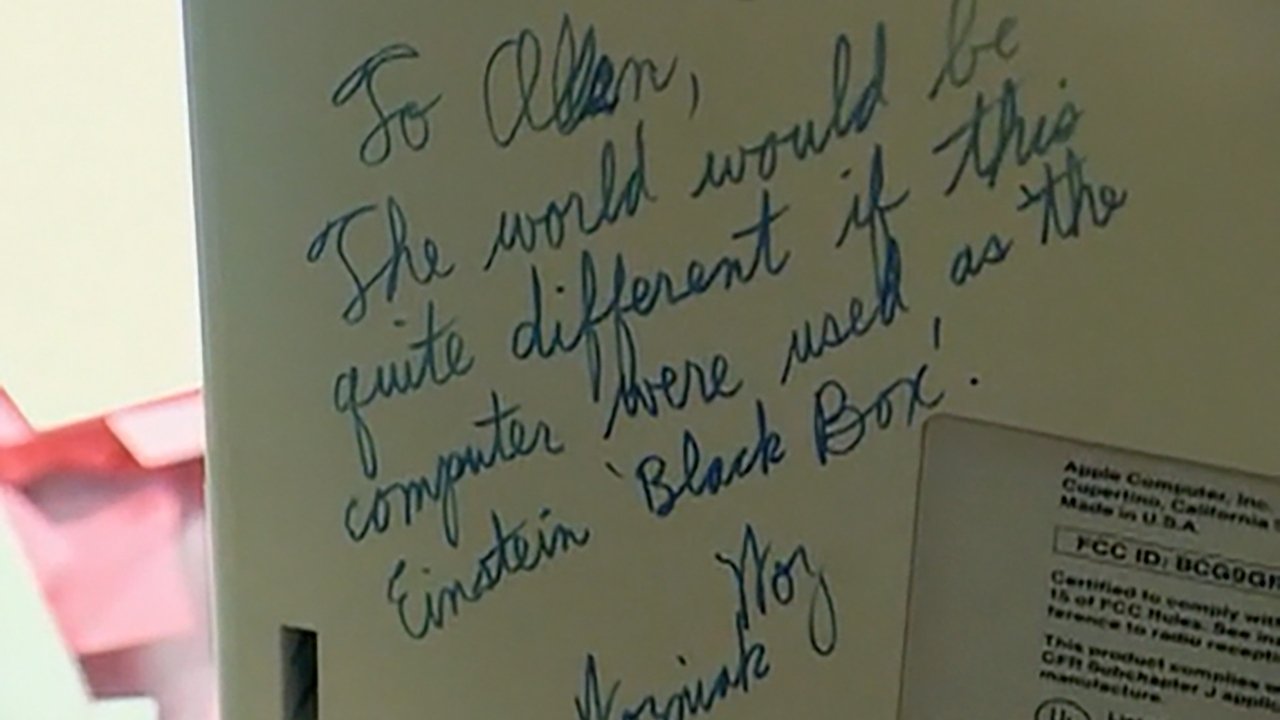 To Allen,
The world would be
quite different if this
computer were used as the
Einstein 'Black Box'.
Woz
Wozniak
Apple Computer, Inc.
Cupertino, California
Made in U.S.A
FCC ID: BCG9GR
Certified to comply with
15 of FCC Rules. See in
ference to radio recepti
This product complies w
CFR Subchapter J applic
manufacture.